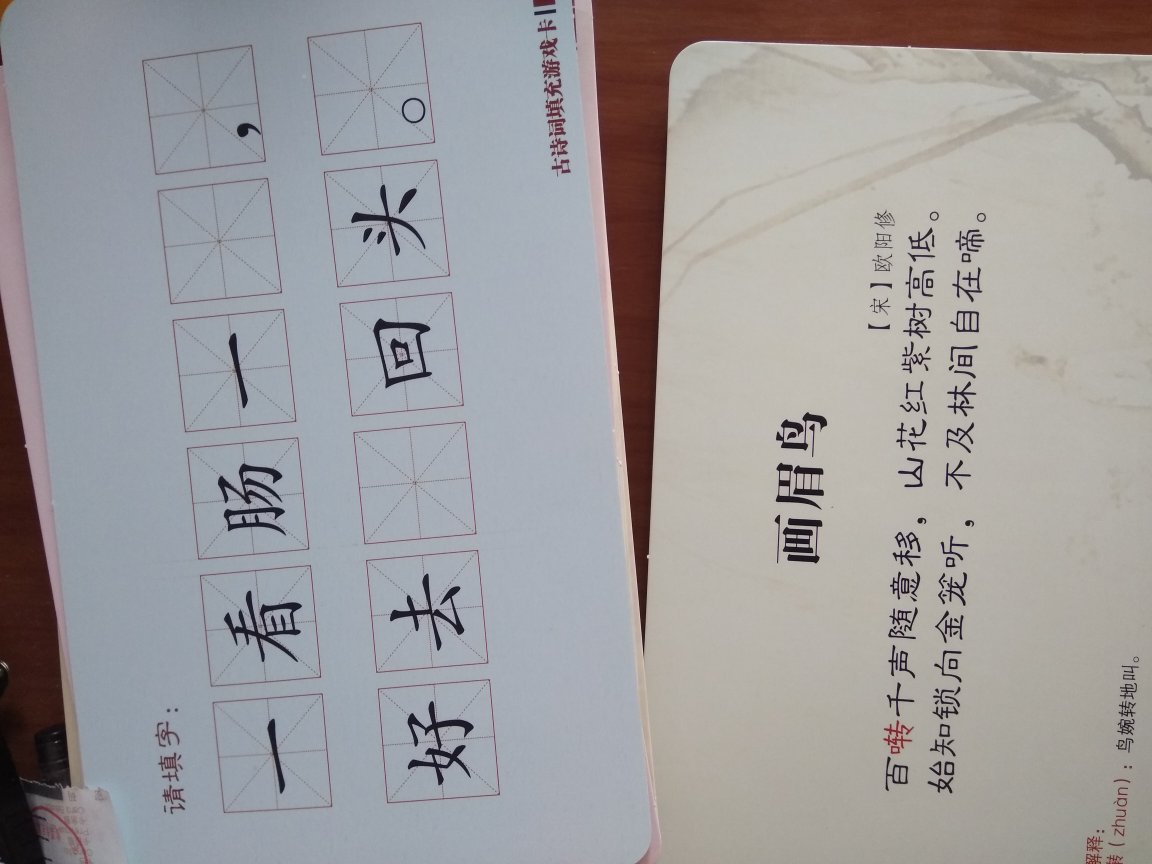 请填字：
一看肠一，
好去回头。
古诗词填充游戏卡
画眉鸟
【宋】欧阳修
百啭千声随意移，山花红紫树高低。
始知锁向金笼听，不及林间自在啼。
解释：
啭（zhuàn）：鸟婉转地叫。